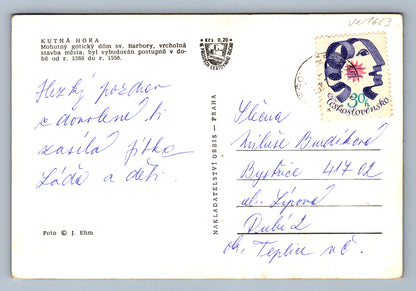 KUTNÁ HORA
Mohutný gotický dóm sv. Barbory, vrcholná
stavba města, byl vybudován postupně v do-
bě od r. 1388 do r. 1558.
Kčs 0,20
Hezký pozdrav
z dovolené ti
zasílá Jitka
Láďa a děti.
Foto © J. Ehm
NAKLADATELSTVÍ ORBIS - PRAHA
30h
Československo
Slečna
Miluše Burdíková
Bystřice 417 02
ul. Lípová
Dubí 2
ok. Teplice v Č.